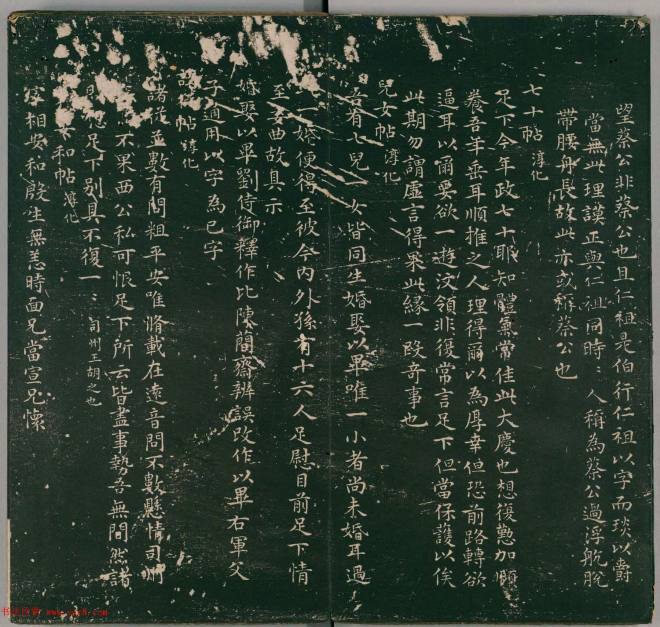 望蔡公非蔡公也且仁祖是伯行仁祖以字而琰以爵
當無此理謨正與仁祖同時〻人稱為蔡公過浮航脫
帶腰舟長故此亦或稱蔡公也
七十帖 淳化
足下今年政七十耶知體氣常佳此大慶也想復懃加頤
養吾年垂耳順推之人理得爾以為厚幸但恐前路轉欲
逼耳以爾要欲一遊汶領非復常言足下但當保護以俟
此期勿謂虛言得果此緣一段奇事也
兒女帖 淳化
吾有七兒一女皆同生婚娶以畢唯一小者尚未婚耳過
一婚便得至彼今內外孫有十六人足慰目前足下情
至委曲故具示
婚娶以畢劉侍御釋作比陳閣齋辨誤改作以畢右軍父
子通用以字為已字
帖 淳化
諸從並數有問粗平安唯脩載在遠音問不數懸情司州
不果西公私可恨足下所云皆盡事勢吾無間然諸
想足下別具不復一〻 司州王胡之也
安和帖 淳化
相安和殷生無恙時面兄當宣兄懷
书法欣赏 www.yac8.com